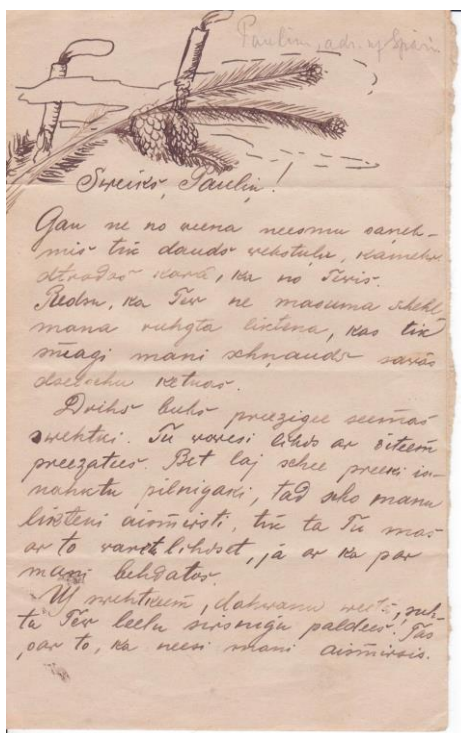 Pauliņ, adr. uz
Sweiks, Pauliņ!
Gan ne no weena neesmu saņeh-
mis tik daudz wehstuļu, kamehr
atrodos karā, ka no Tewis.
Redsu, ka Tew ne masuma schehl
mana ruhgta liktena, kas tik
smagi mani schņauds sawās
dselschu ketnās.
Drihs buhs preezigee seemas
swehtki. Tu waresi lihds ar citeem
preezatees. Bet laj schee preeki is-
nahktu pilnigaki, tad scho manu
likteni aismirsti, tik ta Tu mas
ar to warit lihdset, jā ar ka par
mani behdatos.
Uz swehtkeem, dahwanu weetā, suh-
ta Tew leelu sirsnigu paldees. Tas
par to, ka neesi mani aismirsis.